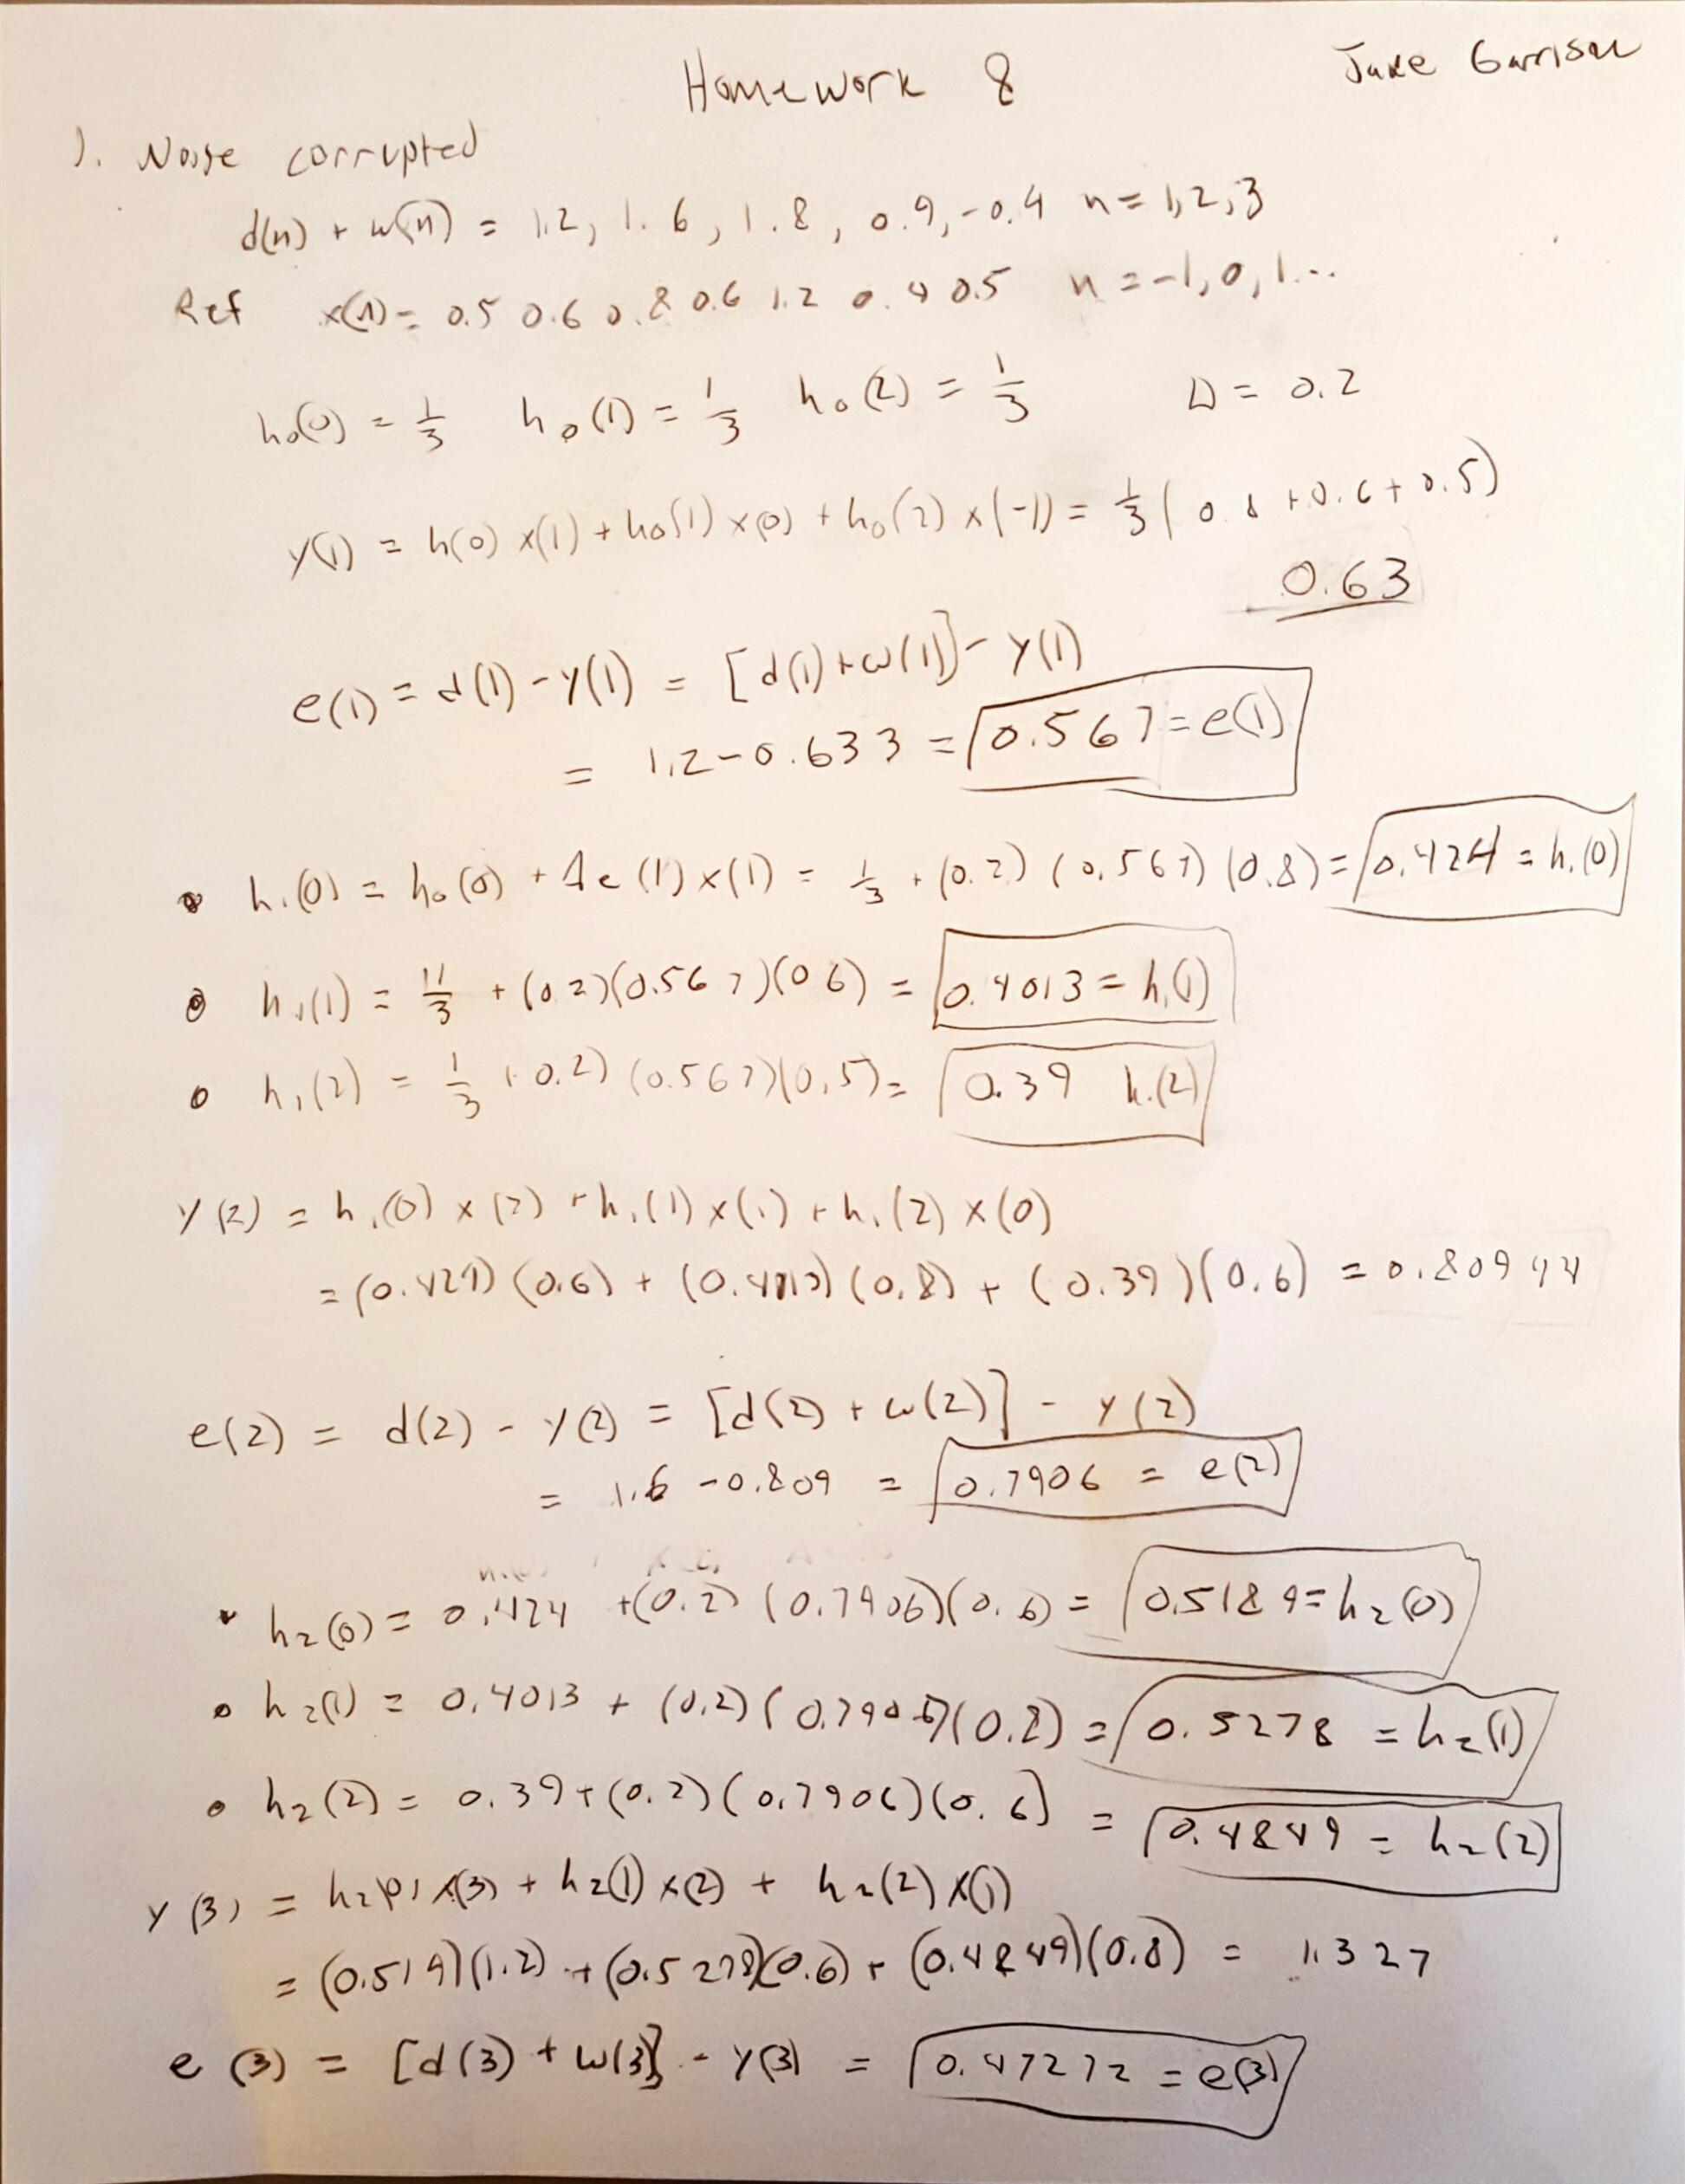 Homework 8
Jake Garrison
1. Noise corrupted
d(n) + w(n) = 1.2, 1.6, 1.8, 0.9, -0.4 n = 1,2,3
Ref x(1) = 0.5 0.6 0.8 0.6 1.2 0.4 0.5 n = -1, 0, 1...
h₀(0) = 1/3 h₀(1) = 1/3 h₀(2) = 1/3 Δ = 0.2
y(1) = h(0) x(1) + h₀(1) x(0) + h₀(2) x(-1) = 1/3 ( 0.8 + 0.6 + 0.5)
0.63
e(1) = d(1) - y(1) = [d(1) + w(1)] - y(1)
= 1.2 - 0.633 = 0.567 = e(1)
h₁(0) = h₀(0) + Δe(1) x(1) = 1/3 + (0.2) (0.567) (0.8) = 0.424 = h₁(0)
h₁(1) = 1/3 + (0.2)(0.567)(0.6) = 0.4013 = h₁(1)
h₁(2) = 1/3 + 0.2) (0.567)(0.5) = 0.39 h₁(2)
y(2) = h₁(0) x(2) + h₁(1) x(1) + h₁(2) x(0)
= (0.424) (0.6) + (0.4013) (0.8) + (0.39)(0.6) = 0.80944
e(2) = d(2) - y(2) = [d(2) + w(2)] - y(2)
= 1.6 - 0.809 = 0.7906 = e(2)
h₂(0) = 0.424 + (0.2) (0.7906)(0.6) = 0.5189 = h₂(0)
h₂(1) = 0.4013 + (0.2)(0.7906)(0.8) = 0.5278 = h₂(1)
h₂(2) = 0.39 + (0.2)(0.7906)(0.6) = 0.4849 = h₂(2)
y(3) = h₂(0) x(3) + h₂(1) x(2) + h₂(2) x(1)
= (0.519)(1.2) + (0.5278)(0.6) + (0.4849)(0.8) = 1.327
e(3) = [d(3) + w(3)] - y(3) = 0.47272 = e(3)